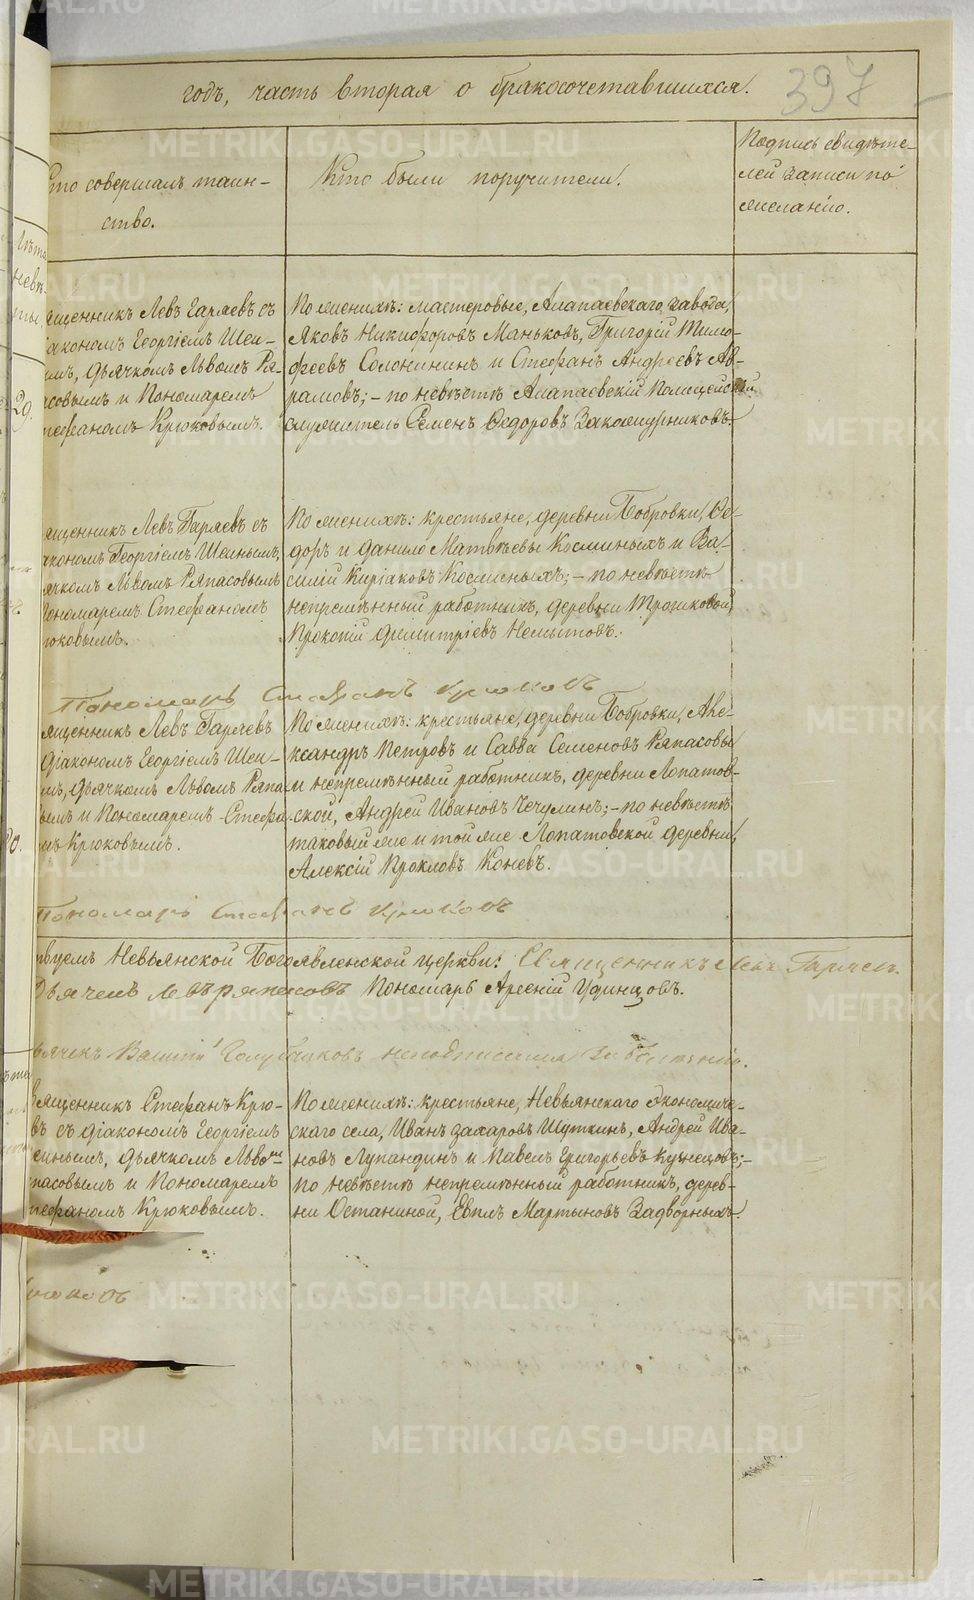 годъ, часть вторая о бракосочетавшихся.
397
Кто совершалъ таин-
ство.
Кто были поручители.
Подпись свидѣте-
лей записи по
желанію.
Лѣта
невѣ-
сты
29.
ященникъ Левъ Гаряевъ съ
іакономъ Георгіемъ Шеи-
ымъ, дьячкомъ Львомъ Ря-
совымъ и Пономаремъ
тефаномъ Крюковымъ.
По женихѣ: мастеровые, Алапаевскаго завода,
Яковъ Никифоровъ Маньковъ, Григорій Тимо-
феевъ Солонининъ и Стефанъ Андреевъ Ав-
рамовъ; – по невѣстѣ Алапаевскій Полицейскій
служитель Семенъ Ѳедоровъ Закожурниковъ.
ященникъ Левъ Гаряевъ съ
акономъ Георгіемъ Шеинымъ,
ячкомъ Львомъ Ряпасовымъ
ономаремъ Стефаномъ
рюковымъ.
По женихѣ: крестьяне, деревни Бобровки, Ѳе-
доръ и Данило Матвѣевы Косминыхъ и Ва-
силій Киріаковъ Косминыхъ; – по невѣстѣ
непремѣнный работникъ, деревни
Прокопій Димитріевъ Немытовъ.
Пономарь Стефанъ Крюковъ
ященникъ Левъ Гаряевъ
діакономъ Георгіемъ Шеи-
мъ, дьячкомъ Львомъ Ряпа-
вымъ и Пономаремъ Стефа-
мъ Крюковымъ.
По женихѣ: крестьяне, деревни Бобровки, Але-
ксандръ Петровъ и Савва Семеновъ Ряпасовы
и непремѣнный работникъ, деревни Лопатов-
ской, Андрей Ивановъ Чечулинъ; – по невѣстѣ
таковый же и той же Лопатовской деревни,
Алексій Прокловъ Коневъ.
Пономарь Стефанъ Крюковъ
твуемъ Невьянской Богоявленской церкви: Священникъ Левъ Гаряевъ.
Дьячекъ Левъ Ряпасовъ Пономарь Арсеній Удинцовъ.
ьячекъ Голубчиковъ неподписался за болѣзнію.
Священникъ Стефанъ Крю-
въ съ діакономъ Георгіемъ
еинымъ, дьячкомъ Львомъ
пасовымъ и Пономаремъ
тефаномъ Крюковымъ.
По женихѣ: крестьяне, Невьянскаго Экономиче-
скаго села, Иванъ Захаровъ Шуткинъ, Андрей Ива-
новъ Лупандинъ и Павелъ Григорьевъ Кузнецовъ; –
по невѣстѣ непремѣнный работникъ, дерев-
ни Останиной, Евплъ Мартыновъ Задворныхъ.
рюковъ
METRIKI.GASO-URAL.RU